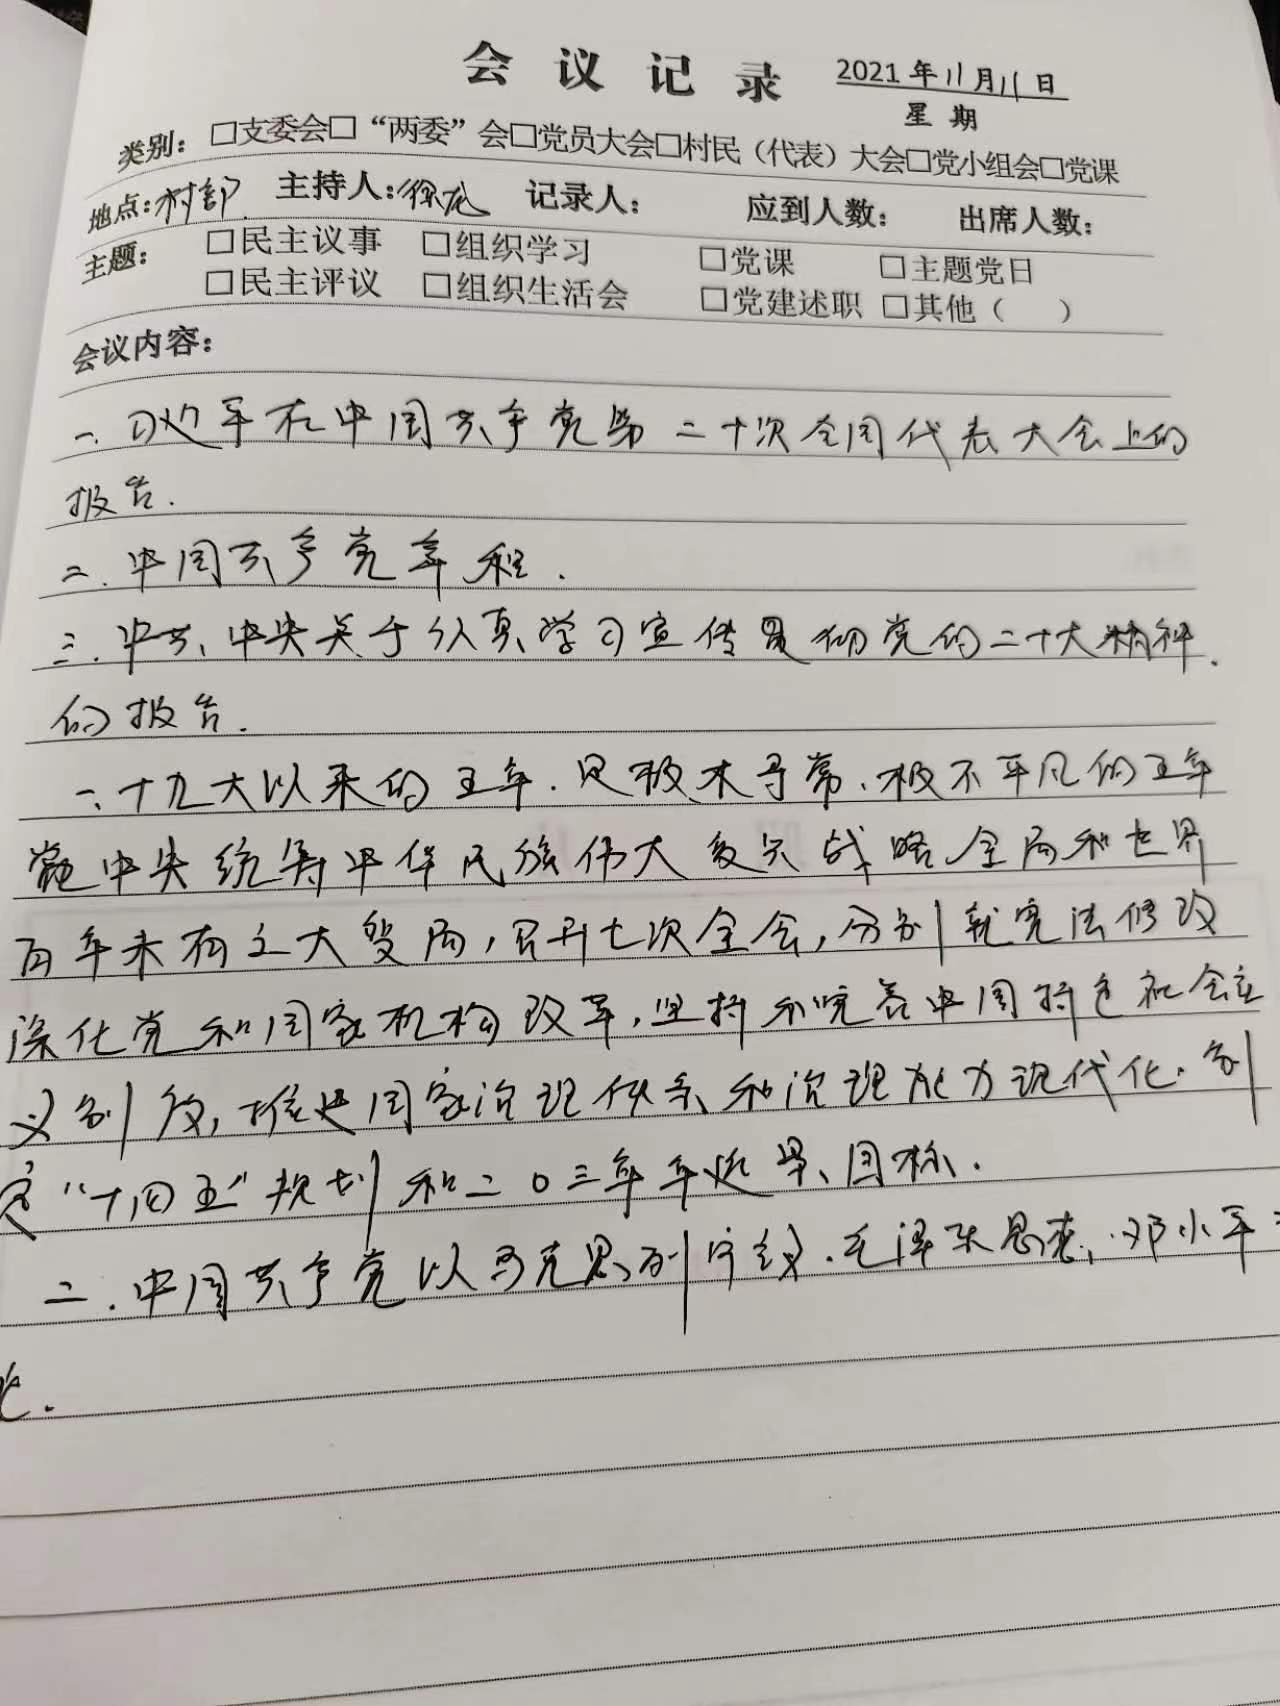 会议记录 2021年11月11日
星期
类别：□支委会□“两委”会□党员大会□村民（代表）大会□党小组会□党课
地点：村部 主持人：徐龙 记录人： 应到人数： 出席人数：
主题： □民主议事 □组织学习 □党课 □主题党日
□民主评议 □组织生活会 □党建述职 □其他（ ）
会议内容：
一、习近平在中国共产党第二十次全国代表大会上的
报告.
二.中国共产党章程.
三.中共中央关于认真学习宣传贯彻党的二十大精神.
的报告.
一、十九大以来的五年.是极不寻常、极不平凡的五年
党中央统筹中华民族伟大复兴战略全局和世界
百年未有之大变局,召开七次全会,分别就宪法修改
深化党和国家机构改革,坚持和完善中国特色社会主
义制度,推进国家治理体系和治理能力现代化.制
定“十四五”规划和二0三五年远景目标.
二.中国共产党以马克思列宁主义.毛泽东思想,邓小平